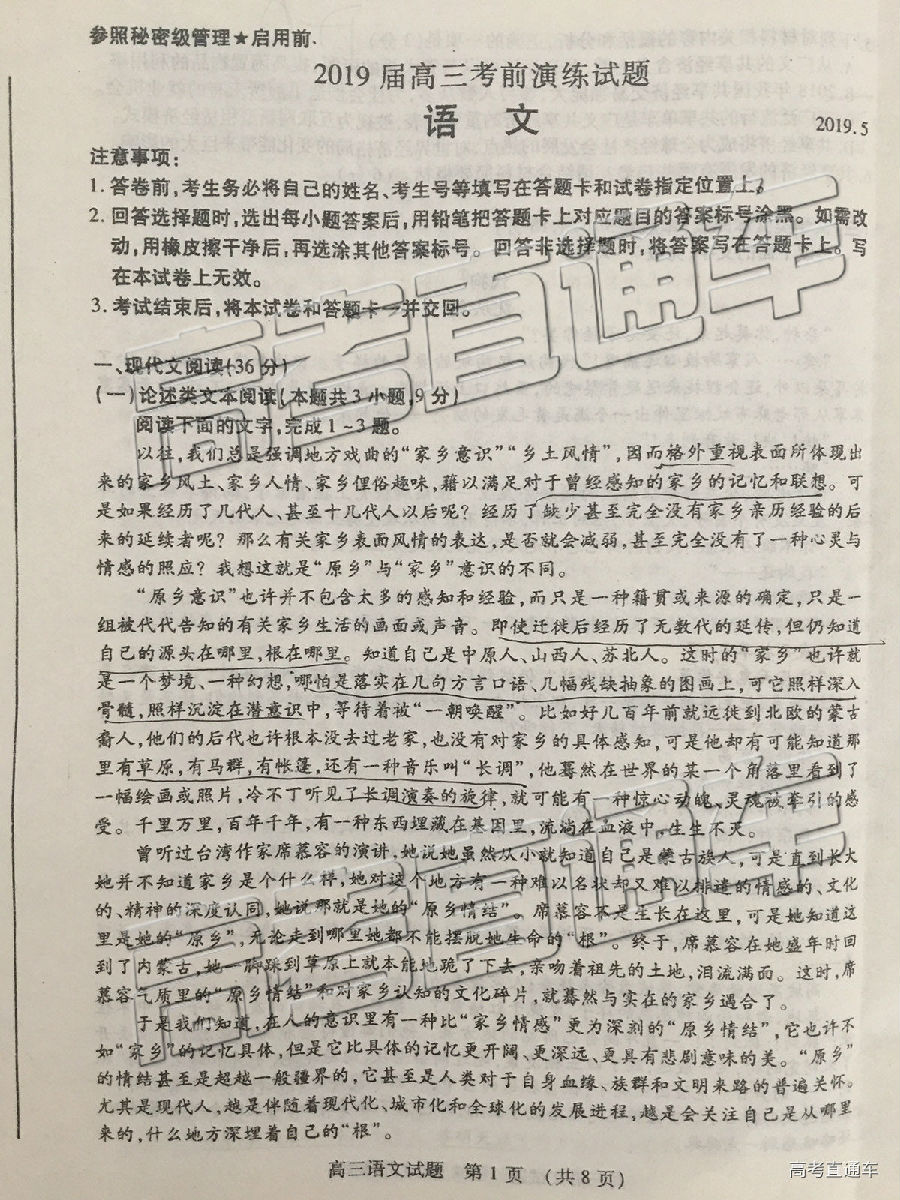 参照秘密级管理★启用前
2019届高三考前演练试题
语 文
2019.5
注意事项：
1.答卷前，考生务必将自己的姓名、考生号等填写在答题卡和试卷指定位置上。
2.回答选择题时，选出每小题答案后，用铅笔把答题卡上对应题目的答案标号涂黑。如需改
动，用橡皮擦干净后，再选涂其他答案标号。回答非选择题时，将答案写在答题卡上。写
在本试卷上无效。
3.考试结束后，将本试卷和答题卡一并交回。
一、现代文阅读(36分)
(一)论述类文本阅读(本题共3小题，9分)
阅读下面的文字，完成1~3题。
以往，我们总是强调地方戏曲的“家乡意识”“乡土风情”，因而格外重视表面所体现出
来的家乡风土、家乡人情、家乡俚俗趣味，藉以满足对于曾经感知的家乡的记忆和联想。可
是如果经历了几代人、甚至十几代人以后呢？经历了缺少甚至完全没有家乡亲历经验的后
来的延续者呢？那么有关家乡表面风情的表达，是否就会减弱，甚至完全没有了一种心灵与
情感的照应？我想这就是“原乡”与“家乡”意识的不同。
“原乡意识”也许并不包含太多的感知和经验，而只是一种籍贯或来源的确定，只是一
组被代代告知的有关家乡生活的画面或声音。即使迁徙后经历了无数代的延传，但仍知道
自己的源头在哪里，根在哪里。知道自己是中原人、山西人、苏北人。这时的“家乡”也许就
是一个梦境、一种幻想，哪怕是落实在几句方言口语、几幅残缺抽象的图画上，可它照样深入
骨髓，照样沉淀在潜意识中，等待着被“一朝唤醒”。比如好几百年前就远徙到北欧的蒙古
裔人，他们的后代也许根本没去过老家，也没有对家乡的具体感知，可是他却有可能知道那
里有草原，有马群，有帐篷，还有一种音乐叫“长调”，他蓦然在世界的某一个角落里看到了
一幅绘画或照片，冷不丁听见了长调演奏的旋律，就可能有一种惊心动魄、灵魂被牵引的感
受。千里万里，百年千年，有一种东西埋藏在基因里，流淌在血液中，生生不灭。
曾听过台湾作家席慕容的演讲，她说她虽然从小就知道自己是蒙古族人，可是直到长大
她并不知道家乡是个什么样，她对这个地方有一种难以名状却又难以排遣的情感的、文化
的、精神的深度认同，她说那就是她的“原乡情结”。席慕容不是生长在这里，可是她知道这
里是她的“原乡”，无论走到哪里她都不能摆脱她生命的“根”。终于，席慕容在她盛年时回
到了内蒙古，她一脚踩到草原上就本能地跪了下去，亲吻着祖先的土地，泪流满面。这时，席
慕容气质里的“原乡情结”和对家乡认知的文化碎片，就蓦然与实在的家乡遇合了。
于是我们知道，在人的意识里有一种比“家乡情感”更为深刻的“原乡情结”，它也许不
如“家乡”的记忆具体，但是它比具体的记忆更开阔、更深远、更具有悲剧意味的美。“原乡”
的情结甚至是超越一般疆界的，它甚至是人类对于自身血缘、族群和文明来路的普遍关怀。
尤其是现代人，越是伴随着现代化、城市化和全球化的发展进程，越是会关注自己是从哪里
来的，什么地方深埋着自己的“根”。
高三语文试题 第1页 (共8页)
高考直通车
高考直通车
高考直通车